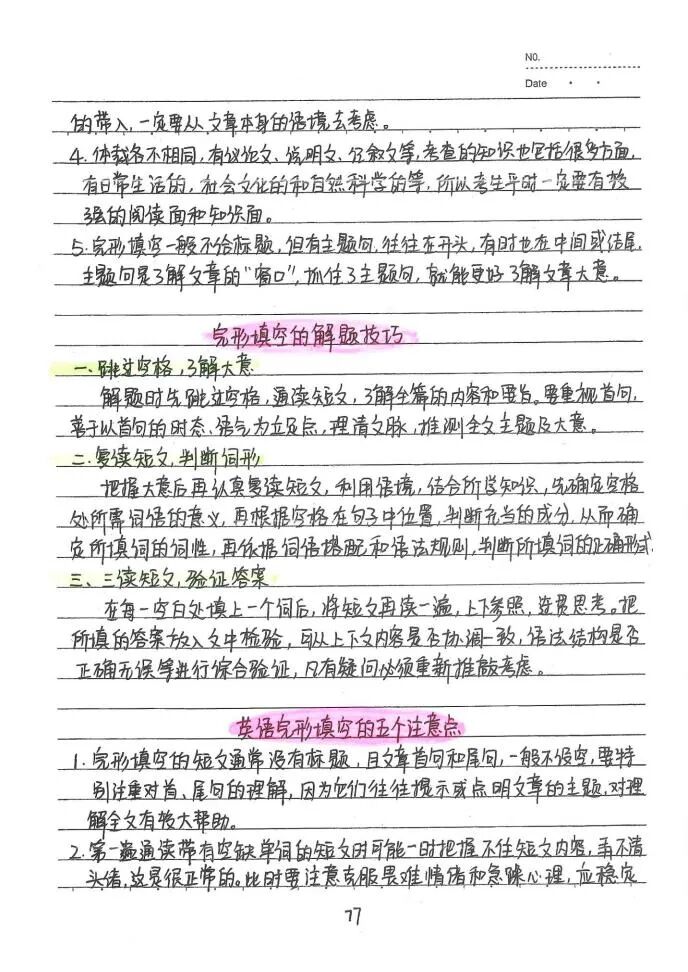 NO.
Date
的带入，一定要从文章本身的语境去考虑。
4. 体裁各不相同，有议论文、说明文、记叙文等，考查的知识也包括很多方面，
有日常生活的，社会文化的和自然科学的等，所以考生平时一定要有较
强的阅读面和知识面。
5. 完形填空一般不给标题，但有主题句，往往在开头，有时也在中间或结尾，
主题句是了解文章的“窗口”，抓住了主题句，就能更好了解文章大意。
完形填空的解题技巧
一、跳过空格，了解大意
解题时先跳过空格，通读短文，了解全篇的内容和要旨。要重视首句，
善于以首句的时态、语气为立足点，理清文脉，推测全文主题及大意。
二、复读短文，判断词形
把握大意后再认真复读短文，利用语境，结合所学知识，先确定空格
处所需词语的意义，再根据空格在句子中位置，判断充当的成分，从而确
定所填词的词性，再依据词语搭配和语法规则，判断所填词的正确形式。
三、三读短文，验证答案
在每一空白处填上一个词后，将短文再读一遍，上下参照，连贯思考。把
所填的答案放入文中检验，可从上下文内容是否协调一致，语法结构是否
正确无误等进行综合验证，凡有疑问必须重新推敲考虑。
英语完形填空的五个注意点
1. 完形填空的短文通常没有标题，且文章首句和尾句，一般不设空，要特
别注重对首、尾句的理解，因为它们往往提示或点明文章的主题，对理
解全文有较大帮助。
2. 第一遍通读带有空缺单词的短文时可能一时把握不住短文内容，弄不清
头绪，这是很正常的。此时要注意克服畏难情绪和急躁心理，应稳定
77